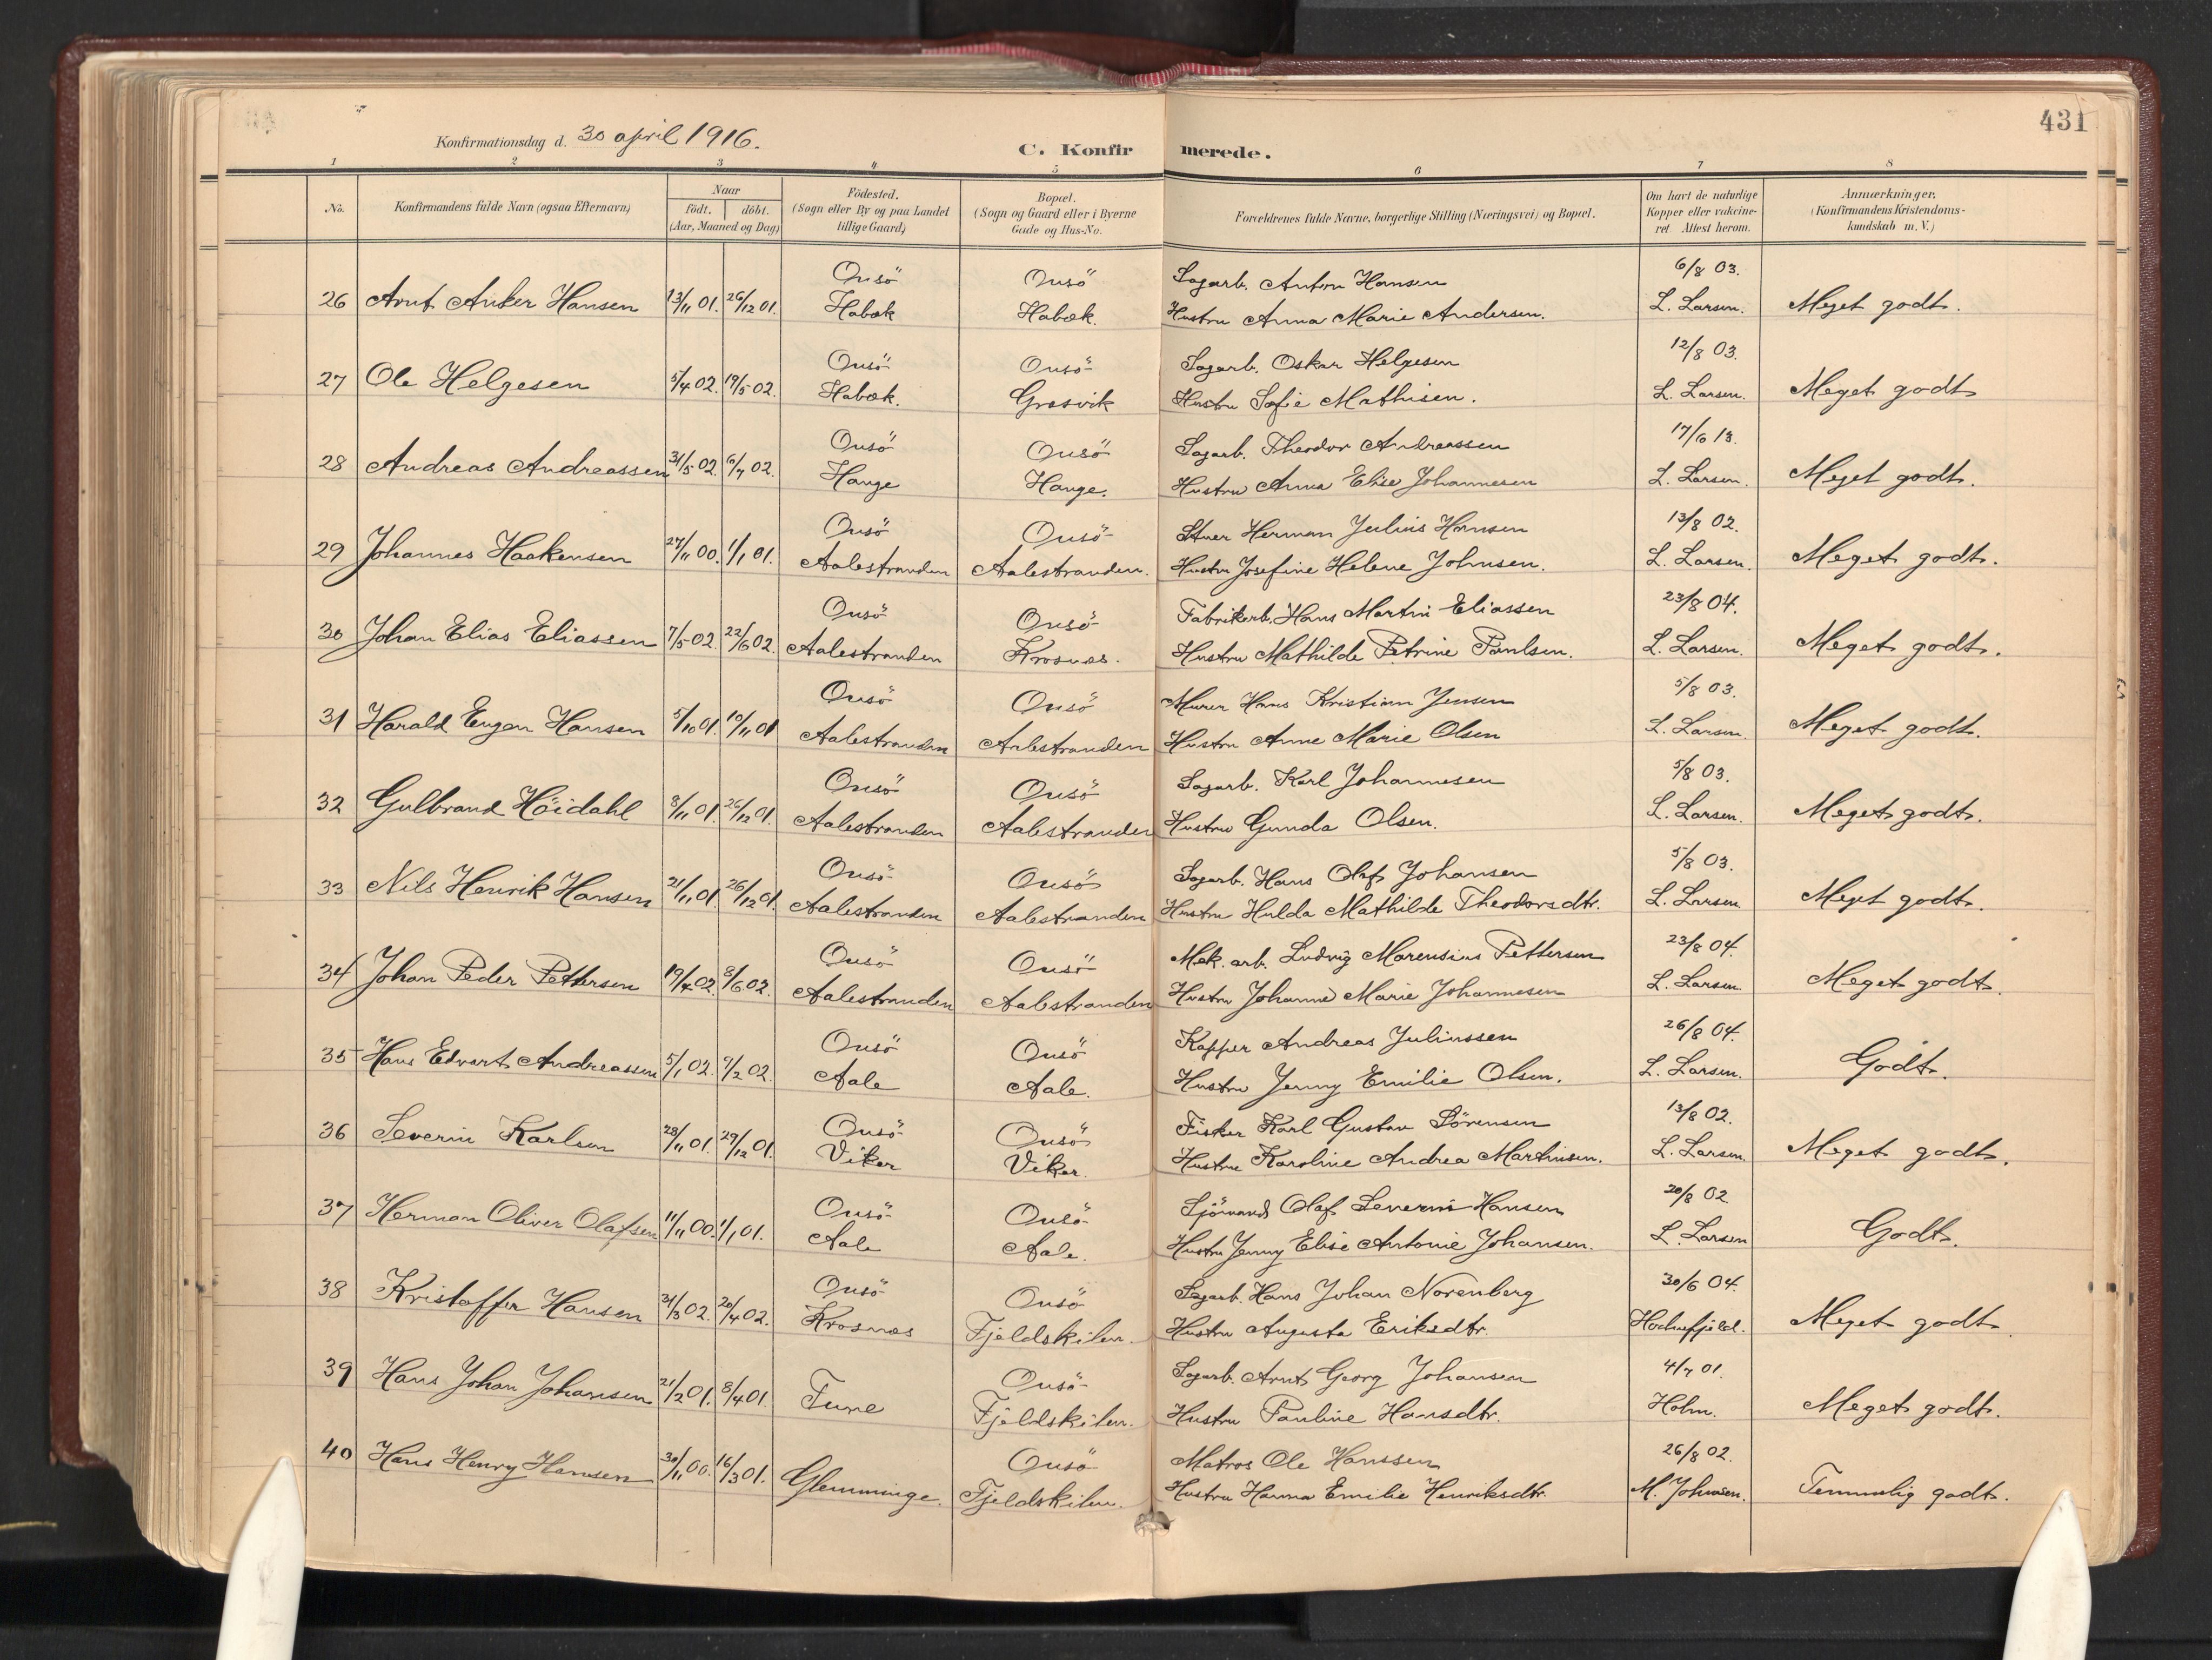 431
Konfirmationsdag d. 30 april 1916.
C. Konfirmerede.
1 2 3 4 5 6 7 8
No.
Konfirmandens fulde Navn (ogsaa Efternavn)
Naar
født. døbt.
(Aar, Maaned og Dag)
Födested.
(Sogn eller By og paa Landet
tillige Gaard)
Bopæl.
(Sogn og Gaard eller i Byerne
Gade og Hus-No.
Forældrenes fulde Navne, borgerlige Stilling (Næringsvei) og Bopæl.
Om havt de naturlige
Kopper eller vakcine-
ret Attest herom.
Anmærkninger,
(Konfirmandens Kristendoms-
kundskab m. V.)
Onsö Onsö Sagarb. Anton Hansen 6/8 03.
26 Arnt Anker Hansen 13/11 01. 26/12 01. Habæk Habæk. Hustru Anna Marie Andersen. L. Larsen. Meget godt.
Onsö Onsö Sagarb. Oskar Helgesen 12/8 03.
27 Ole Helgesen 5/4 02. 19/5 02. Habæk. Græsvik Hustru Sofie Mathisen. L. Larsen. Meget godt
Onsö Onsö Sagarb. Theodor Andreassen 17/6 13.
28 Andreas Andreassen 31/5 02. 6/7 02. Hauge Hauge. Hustru Anna Elise Johannesen L. Larsen. Meget godt.
Onsö Onsö Stuer Herman Julius Hansen 13/8 02.
29 Johannes Haakensen 27/11 00. 1/1 01. Aalestranden Aalestranden. Hustru Josefine Helene Johnsen. L. Larsen. Meget godt.
Onsö Onsö Fabrikarb. Hans Martin Eliassen 23/8 04.
30 Johan Elias Eliassen 7/5 02. 22/6 02. Aalestranden Krosnæs. Hustru Mathilde Petrine Paulsen. L. Larsen. Meget godt.
Onsö Onsö Murer Hans Kristian Jensen 5/8 03.
31 Harald Eugen Hansen 5/10 01. 10/11 01 Aalestranden Aalestranden Hustru Anne Marie Olsen L. Larsen. Meget godt.
Onsö Onsö Sagarb. Karl Johannesen 5/8 03.
32 Gulbrand Höidahl 8/11 01. 26/12 01. Aalestranden Aalestranden Hustru Gunda Olsen. L. Larsen. Meget godt.
Onsö Onsö Sagarb. Hans Olaf Johansen 5/8 03.
33 Nils Henrik Hansen 21/11 01. 26/12 01. Aalestranden Aalestranden Hustru Hulda Mathilde Theodorsdtr. L. Larsen Meget godt.
Onsö Onsö Mek. arb. Ludvig Marensius Pettersen 23/8 04.
34 Johan Peder Pettersen 19/4 02. 8/6 02. Aalestranden Aalestranden Hustru Johanne Marie Johannesen L. Larsen. Meget godt.
Onsö Onsö Kapper Andreas Juliussen 26/8 04.
35 Hans Edvart Andreassen 5/1 02. 9/2 02. Aale Aale. Hustru Jenny Emilie Olsen. L. Larsen. Godt.
Onsö Onsö Fisker Karl Gustav Sörensen 13/8 02.
36 Severin Karlsen 28/11 01. 29/12 01. Viker Viker. Hustru Karoline Andrea Martinsen. L. Larsen. Meget godt.
Onsö Onsö Sjömand Olaf Severin Hansen 20/8 02.
37 Herman Oliver Olafsen 11/11 00. 1/1 01. Aale Aale. Hustru Jenny Elise Antonie Johansen. L. Larsen Godt.
Onsö Onsö Sagarb. Hans Johan Norenberg 30/6 04.
38 Kristoffer Hansen 31/3 02. 20/4 02. Krosnæs Fjeldskilen. Hustru Augusta Eriksdtr. Meget godt.
Onsö Sagarb. Arnt Georg Johansen 4/7 01.
39 Hans Johan Johansen 21/2 01. 8/4 01. Tune Fjeldskilen. Hustru Pauline Hansdtr. Holm. Meget godt.
Onsö Matros Ole Hanssen 26/8 02.
40 Hans Henry Hansen 30/11 00. 16/3 01. Glemminge. Fjeldskilen. Hustru Hanna Emilie Henriksdtr. M. Johnsen. Temmelig godt.